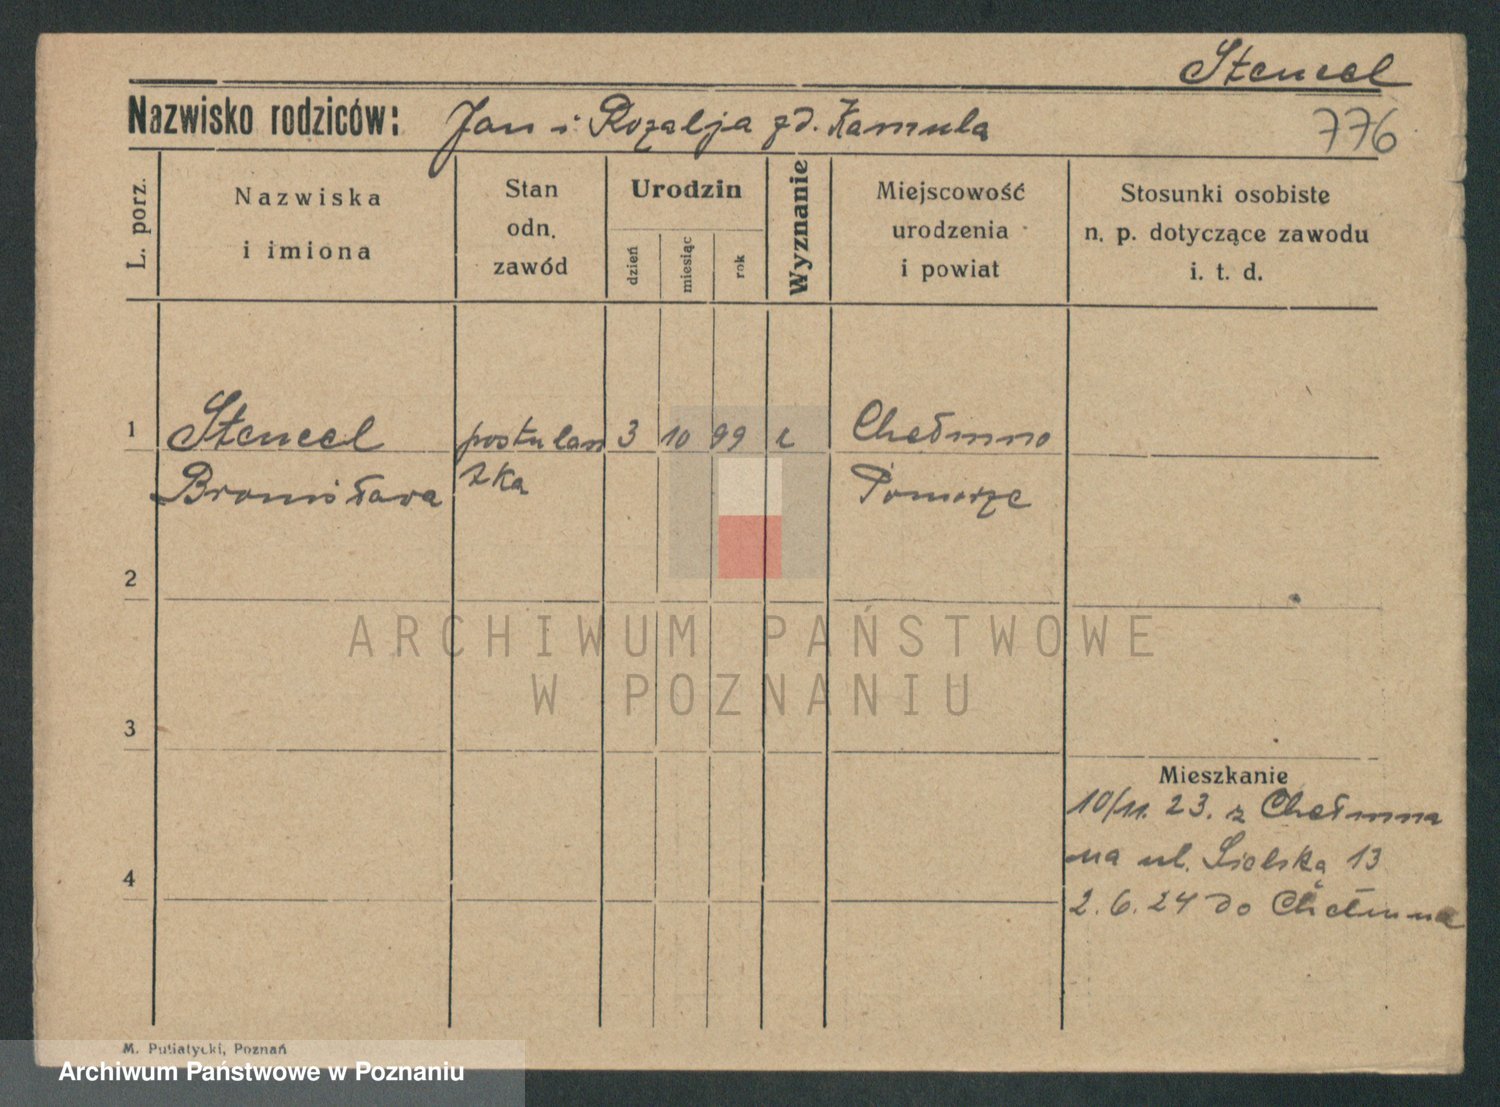 Stencel
Nazwisko rodziców: Jan i Rozalja zd. Kamula
776
L. porz.
Nazwiska
i imiona
Stan
odn.
zawód
Urodzin
dzień
miesiąc
rok
Wyznanie
Miejscowość
urodzenia
i powiat
Stosunki osobiste
n. p. dotyczące zawodu
i. t. d.
1 Stencel postulan 3 10 99 k Chełmno
Bronisława tka Pomorze
2
3
4
Mieszkanie
10/11. 23. z Chełmna
na ul. Sielską 13
2. 6. 24 do Chełmna
ARCHIWUM PAŃSTWOWE
W POZNANIU
M. Putiatycki, Poznań
Archiwum Państwowe w Poznaniu